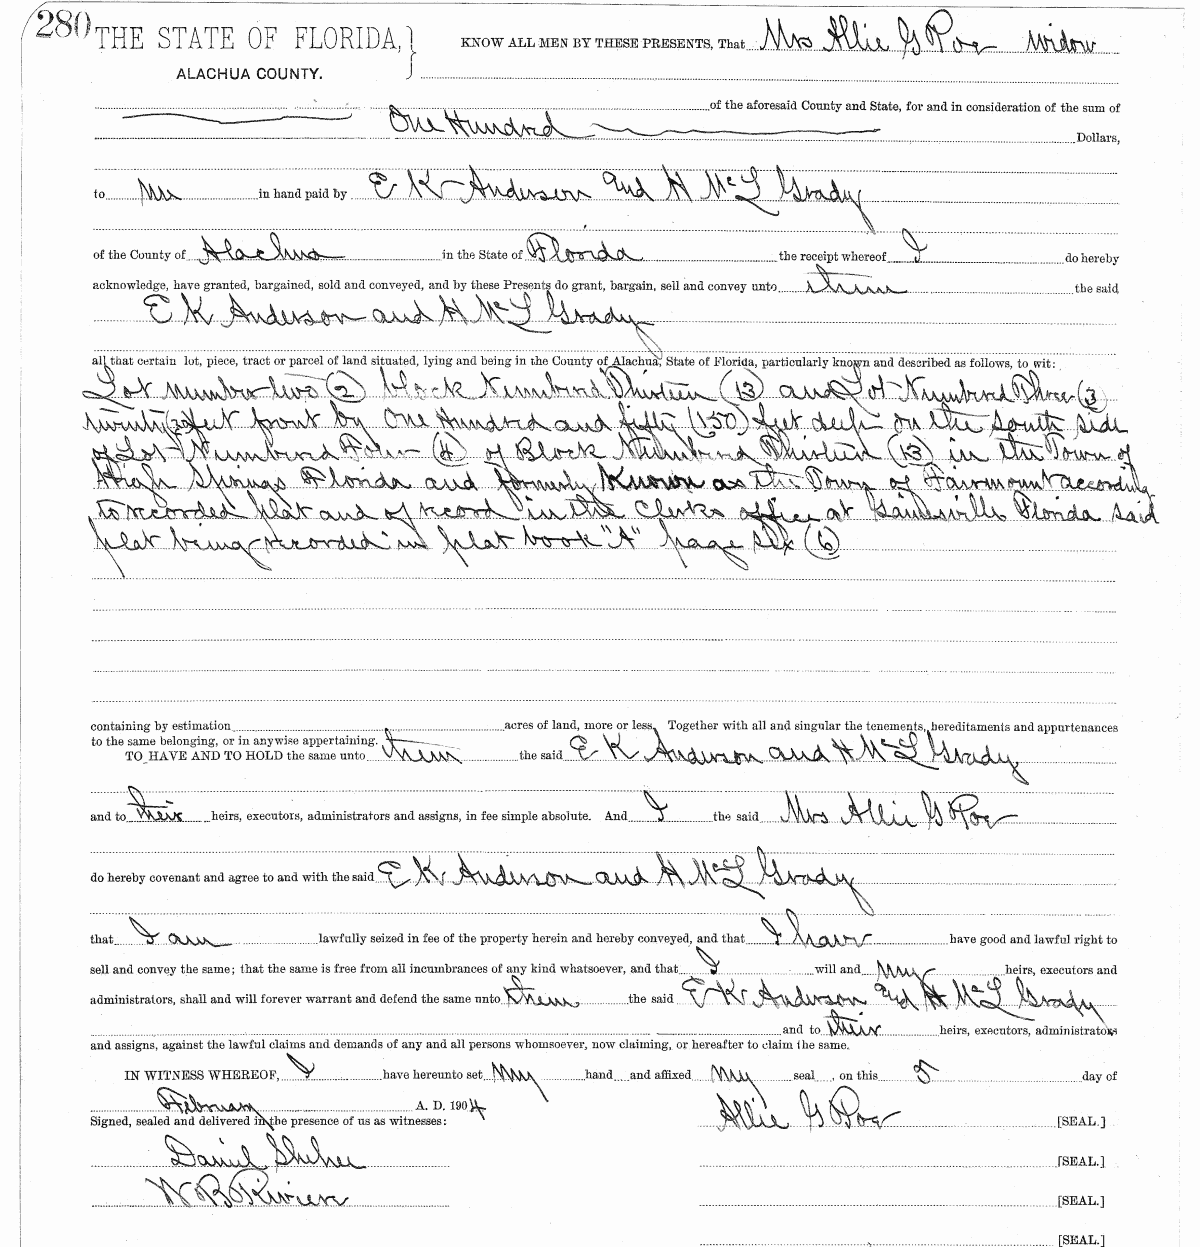 280
THE STATE OF FLORIDA, } KNOW ALL MEN BY THESE PRESENTS, That Mrs Allie G Poe widow
ALACHUA COUNTY.
of the aforesaid County and State, for and in consideration of the sum of
One Hundred Dollars,
to me in hand paid by E K Anderson and H McL Grady
of the County of Alachua in the State of Florida the receipt whereof I do hereby
acknowledge, have granted, bargained, sold and conveyed, and by these Presents do grant, bargain, sell and convey unto them the said
E K Anderson and H McL Grady
all that certain lot, piece, tract or parcel of land situated, lying and being in the County of Alachua, State of Florida, particularly known and described as follows, to wit:
Lot number two (2) block Numbered Thirteen (13) and Lot Numbered Three (3
twenty (20) feet front by One Hundred and fifty (150) feet deep on the South side
of Lot Numbered Four (4) of Block Numbered Thirteen (13) in the Town of
High Springs Florida and formerly Known as the Town of Fairmount according
to recorded plat and of record in the Clerks office at Gainesville Florida said
plat being recorded in plat book "A" page six (6)
containing by estimation acres of land, more or less, Together with all and singular the tenements, hereditaments and appurtenances
to the same belonging, or in anywise appertaining.
TO HAVE AND TO HOLD the same unto them the said E K Anderson and H McL Grady
and to their heirs, executors, administrators and assigns, in fee simple absolute. And I the said Mrs Allie G Poe
do hereby covenant and agree to and with the said E K Anderson and H McL Grady
that I am lawfully seized in fee of the property herein and hereby conveyed, and that I have have good and lawful right to
sell and convey the same; that the same is free from all incumbrances of any kind whatsoever, and that I will and my heirs, executors and
administrators, shall and will forever warrant and defend the same unto them the said E K Anderson and H McL Grady
and to their heirs, executors, administrators
and assigns, against the lawful claims and demands of any and all persons whomsoever, now claiming, or hereafter to claim the same.
IN WITNESS WHEREOF, I have hereunto set my hand and affixed my seal, on this 5 day of
February A. D. 1904 Allie G Poe [SEAL.]
Signed, sealed and delivered in the presence of us as witnesses:
Daniel [SEAL.]
W B [SEAL.]
[SEAL.]